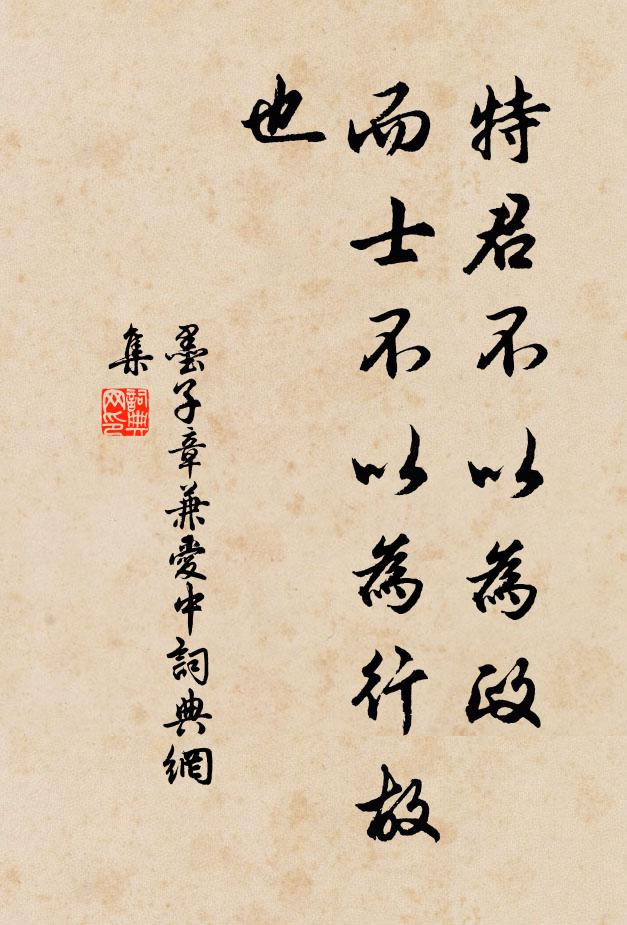 特君不以為政
而士不以為行故
也
墨子章兼愛中詞典網
集
詞典
网印